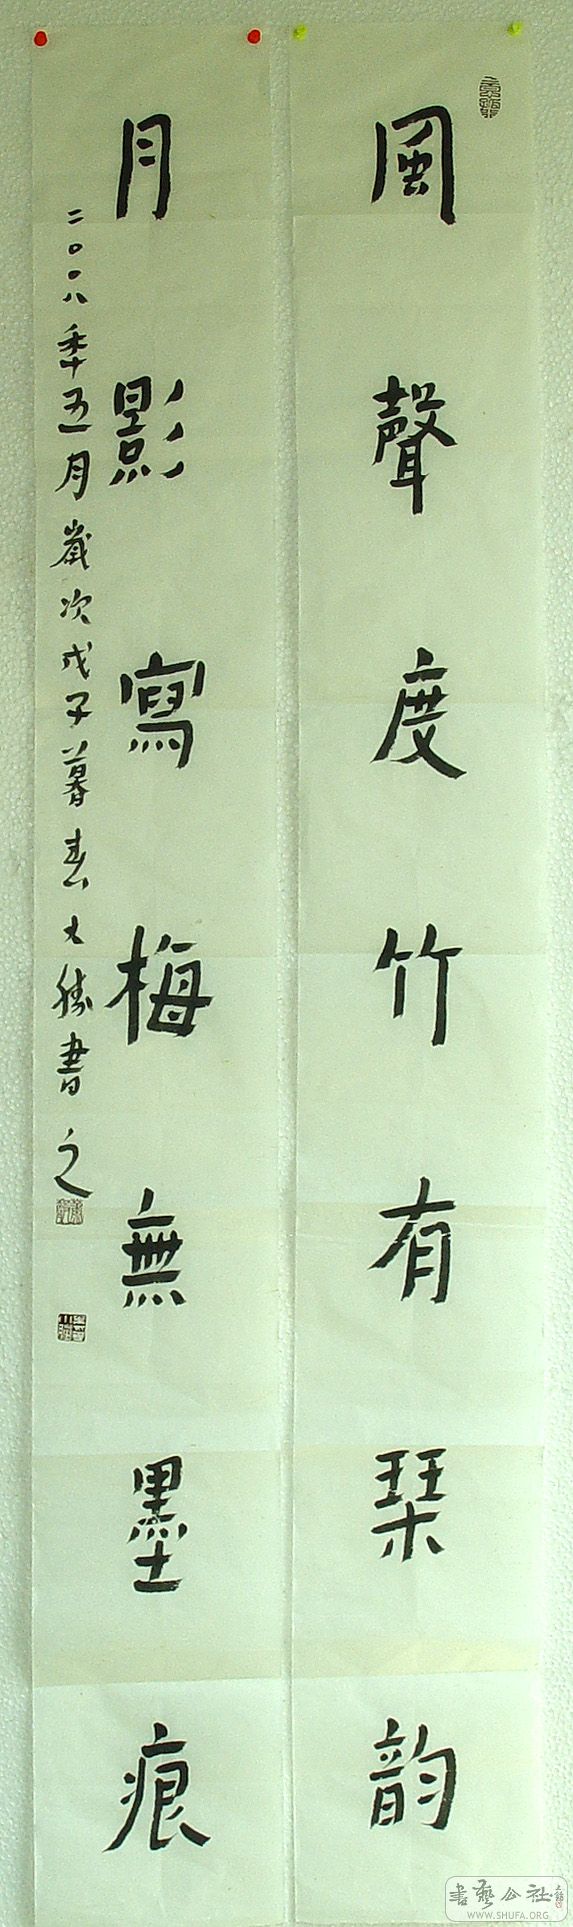 風聲度竹有琹韵
月影寫梅無墨痕
二〇〇八年五月歲次戊子暮春大勝書之
書藝公社
WWW.SHUFA.ORG